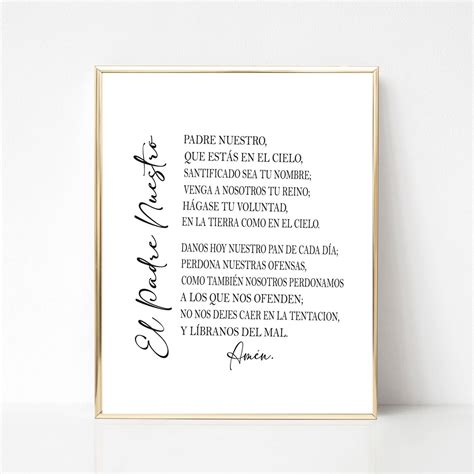 El Padre Nuestro
PADRE NUESTRO,
QUE ESTÁS EN EL CIELO,
SANTIFICADO SEA TU NOMBRE;
VENGA A NOSOTROS TU REINO;
HÁGASE TU VOLUNTAD,
EN LA TIERRA COMO EN EL CIELO.
DANOS HOY NUESTRO PAN DE CADA DÍA;
PERDONA NUESTRAS OFENSAS,
COMO TAMBIÉN NOSOTROS PERDONAMOS
A LOS QUE NOS OFENDEN;
NO NOS DEJES CAER EN LA TENTACION,
Y LÍBRANOS DEL MAL.
Amén.